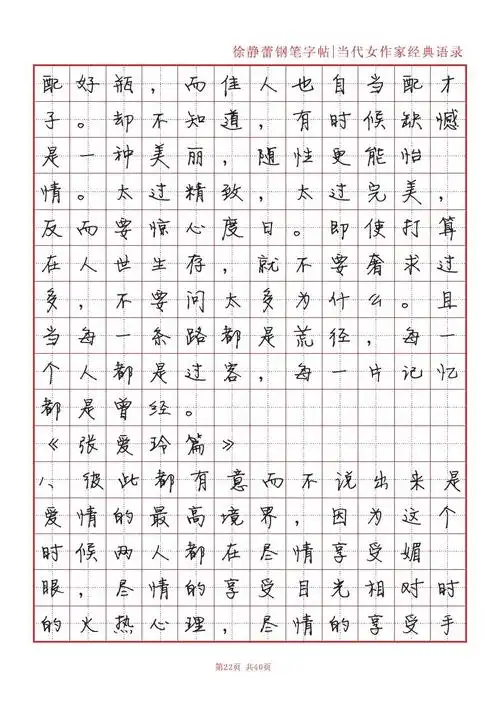 徐静蕾钢笔字帖|当代女作家经典语录
配好瓶，而佳人也自当配才
子。却不知道，有时候缺憾
是一种美丽，随性更能怡
情。太过精致，太过完美，
反而要惊心度日。即使打算
在人世生存，就不要奢求过
多，不要问太多为什么。且
当每一条路都是荒径，每一
个人都是过客，每一片记忆
都是曾经。
《张爱玲篇》
八、彼此都有意而不说出来是
爱情的最高境界，因为这个
时候两人都在尽情享受媚
眼，尽情的享受目光相对时
的火热心理，尽情的享受手
第22页 共40页